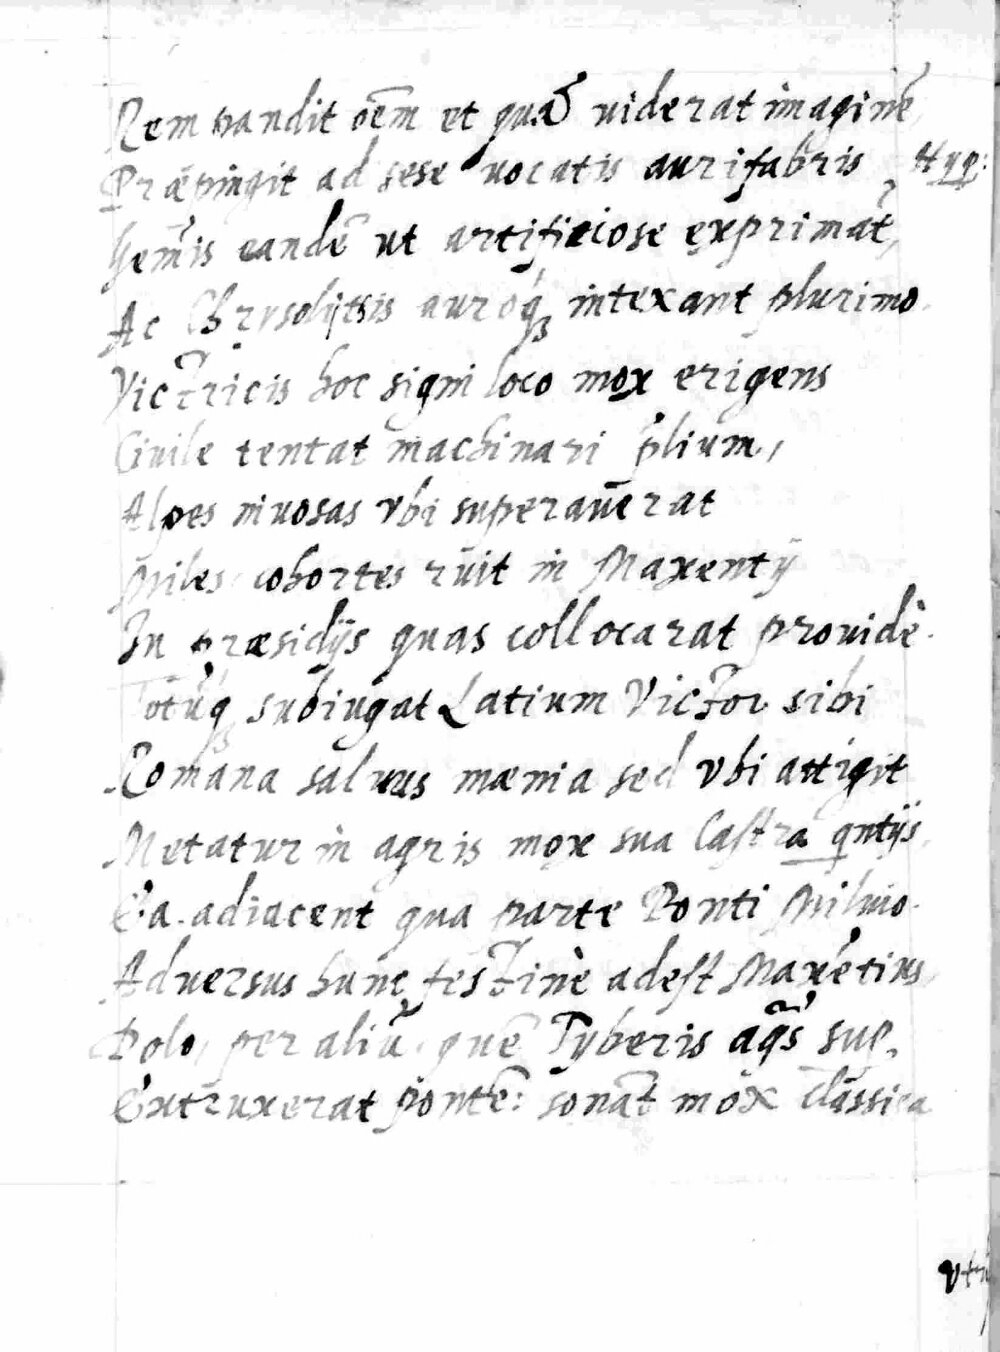 Rem pandit oēm et quā uiderat imaginē,
Præpingit ad sese uocatis aurifabris Hyp:
Gem̄is eandē ut artificiose exprimāt,
Ac Chrysolijtsis auroq́ꝫ intexant plurimo.
Victricis hoc signi loco mox erigens
Ciuile tentat machinari p̄lium,
Alpes niuosas vbi superauerat
Miles cohortes ruit in Maxentij
In præsidijs quas collocarat prouidè.
Totūq́ꝫ subiugat Latium Victor sibi
Romana saluus mænia sed vbi attigit
Metatur in agris mox sua Castra qntijs,
Ea adiacent qua parte Ponti Miluio.
Aduersus hunc festinè adest Maxētius,
Dolo, per aliū quē Tyberis aq̄s sup.
Extruxerat pontē: sonāt mox classica